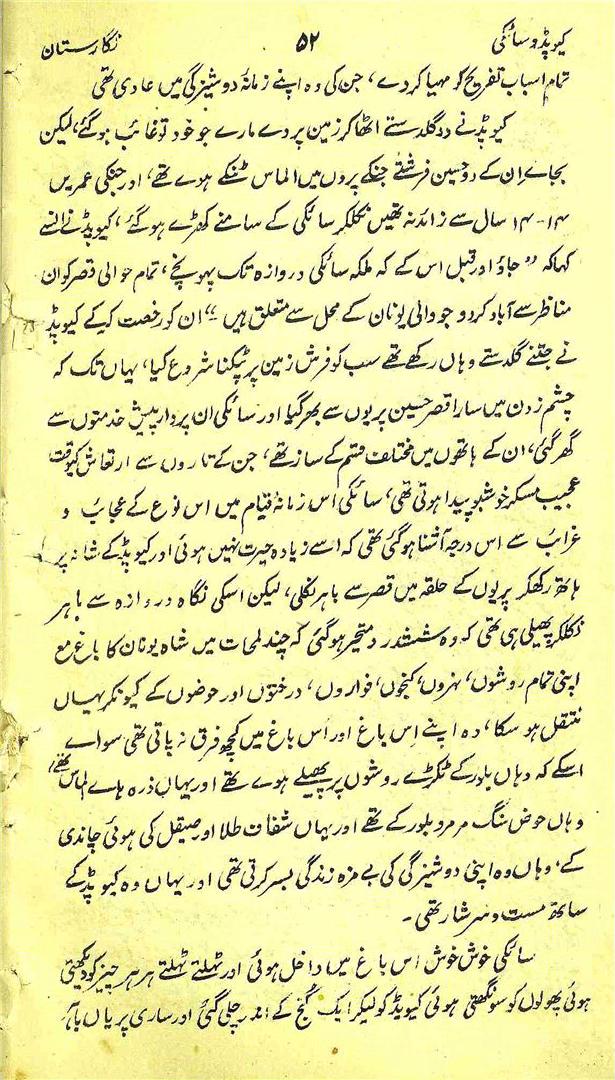 کیوپڈ و سائکی ۵۲ نگارستان
تمام اسباب تفریح کو مہیا کردے، جن کی وہ اپنے زمانۂ دوشیزگی میں عادی تھی
کیوپڈ نے دو گلدستے اٹھا کر زمین پر دے مارے جو خود تو غائب ہوگئے، لیکن
بجاے ان کے دو حسین فرشتے جنکے پروں میں الماس ٹنکے ہوے تھے، اور جنکی عمریں
۱۳-۱۴ سال سے زائد نہ تھیں نکلکر سائکی کے سامنے کھڑے ہوگئے، کیوپڈ نے انسے
کہا کہ "جاؤ اور قبل اس کے کہ ملکہ سائکی دروازہ تک پہونچے، تمام حوالی قصر کو ان
مناظر سے آباد کردو جو والی یونان کے محل سے متعلق ہیں۔" ان کو رخصت کرکے کیوپڈ
نے جتنے گلدستے وہاں رکھے تھے سب کو فرش زمین پر ٹپکنا شروع کیا، یہاں تک کہ
چشم زدن میں سارا قصر حسین پریوں سے بھر گیا اور سائکی ان پردار پیش خدمتوں سے
گھر گئی، ان کے ہاتھوں میں مختلف قسم کے ساز تھے، جن کے تاروں سے ارتعاش کیوقت
عجیب مسکر خوشبو پیدا ہوتی تھی، سائکی اس زمانۂ قیام میں اس نوع کے عجائب و
غرائب سے اس درجہ آشنا ہوگئی تھی کہ اسے زیادہ حیرت نہیں ہوئی اور کیوپڈ کے شانہ پر
ہاتھ رکھکر پریوں کے حلقہ میں قصر سے باہر نکلی، لیکن اسکی نگاہ دروازہ سے باہر
نکلکر پھیلی ہی تھی کہ وہ ششدر و متحیر ہوگئی کہ چند لمحات میں شاہ یونان کا باغ مع
اپنی تمام روشوں، نہروں، کنجوں، فواروں، درختوں اور حوضوں کے کیونکر یہاں
منتقل ہو سکا، وہ اپنے اِس باغ اور اُس باغ میں کچھ فرق نہ پاتی تھی سواے
اسکے کہ وہاں بلور کے ٹکڑے روشوں پر پھیلے ہوے تھے اور یہاں ذرہ ہاے الماس تھے،
وہاں حوض سنگ مرمر و بلور کے تھے اور یہاں شفاف طلا اور صیقل کی ہوئی چاندی
کے، وہاں وہ اپنی دوشیزگی کی بے مزہ زندگی بسر کرتی تھی اور یہاں وہ کیوپڈ کے
ساتھ مست و سرشار تھی۔
سائکی خوش خوش اس باغ میں داخل ہوئی اور ٹہلتے ٹہلتے ہر ہر چیز کو دیکھتی
ہوئی پھولوں کو سونگھتی ہوئی کیوپڈ کو لیکر ایک کنج کے اندر چلی گئی اور ساری پریاں باہر